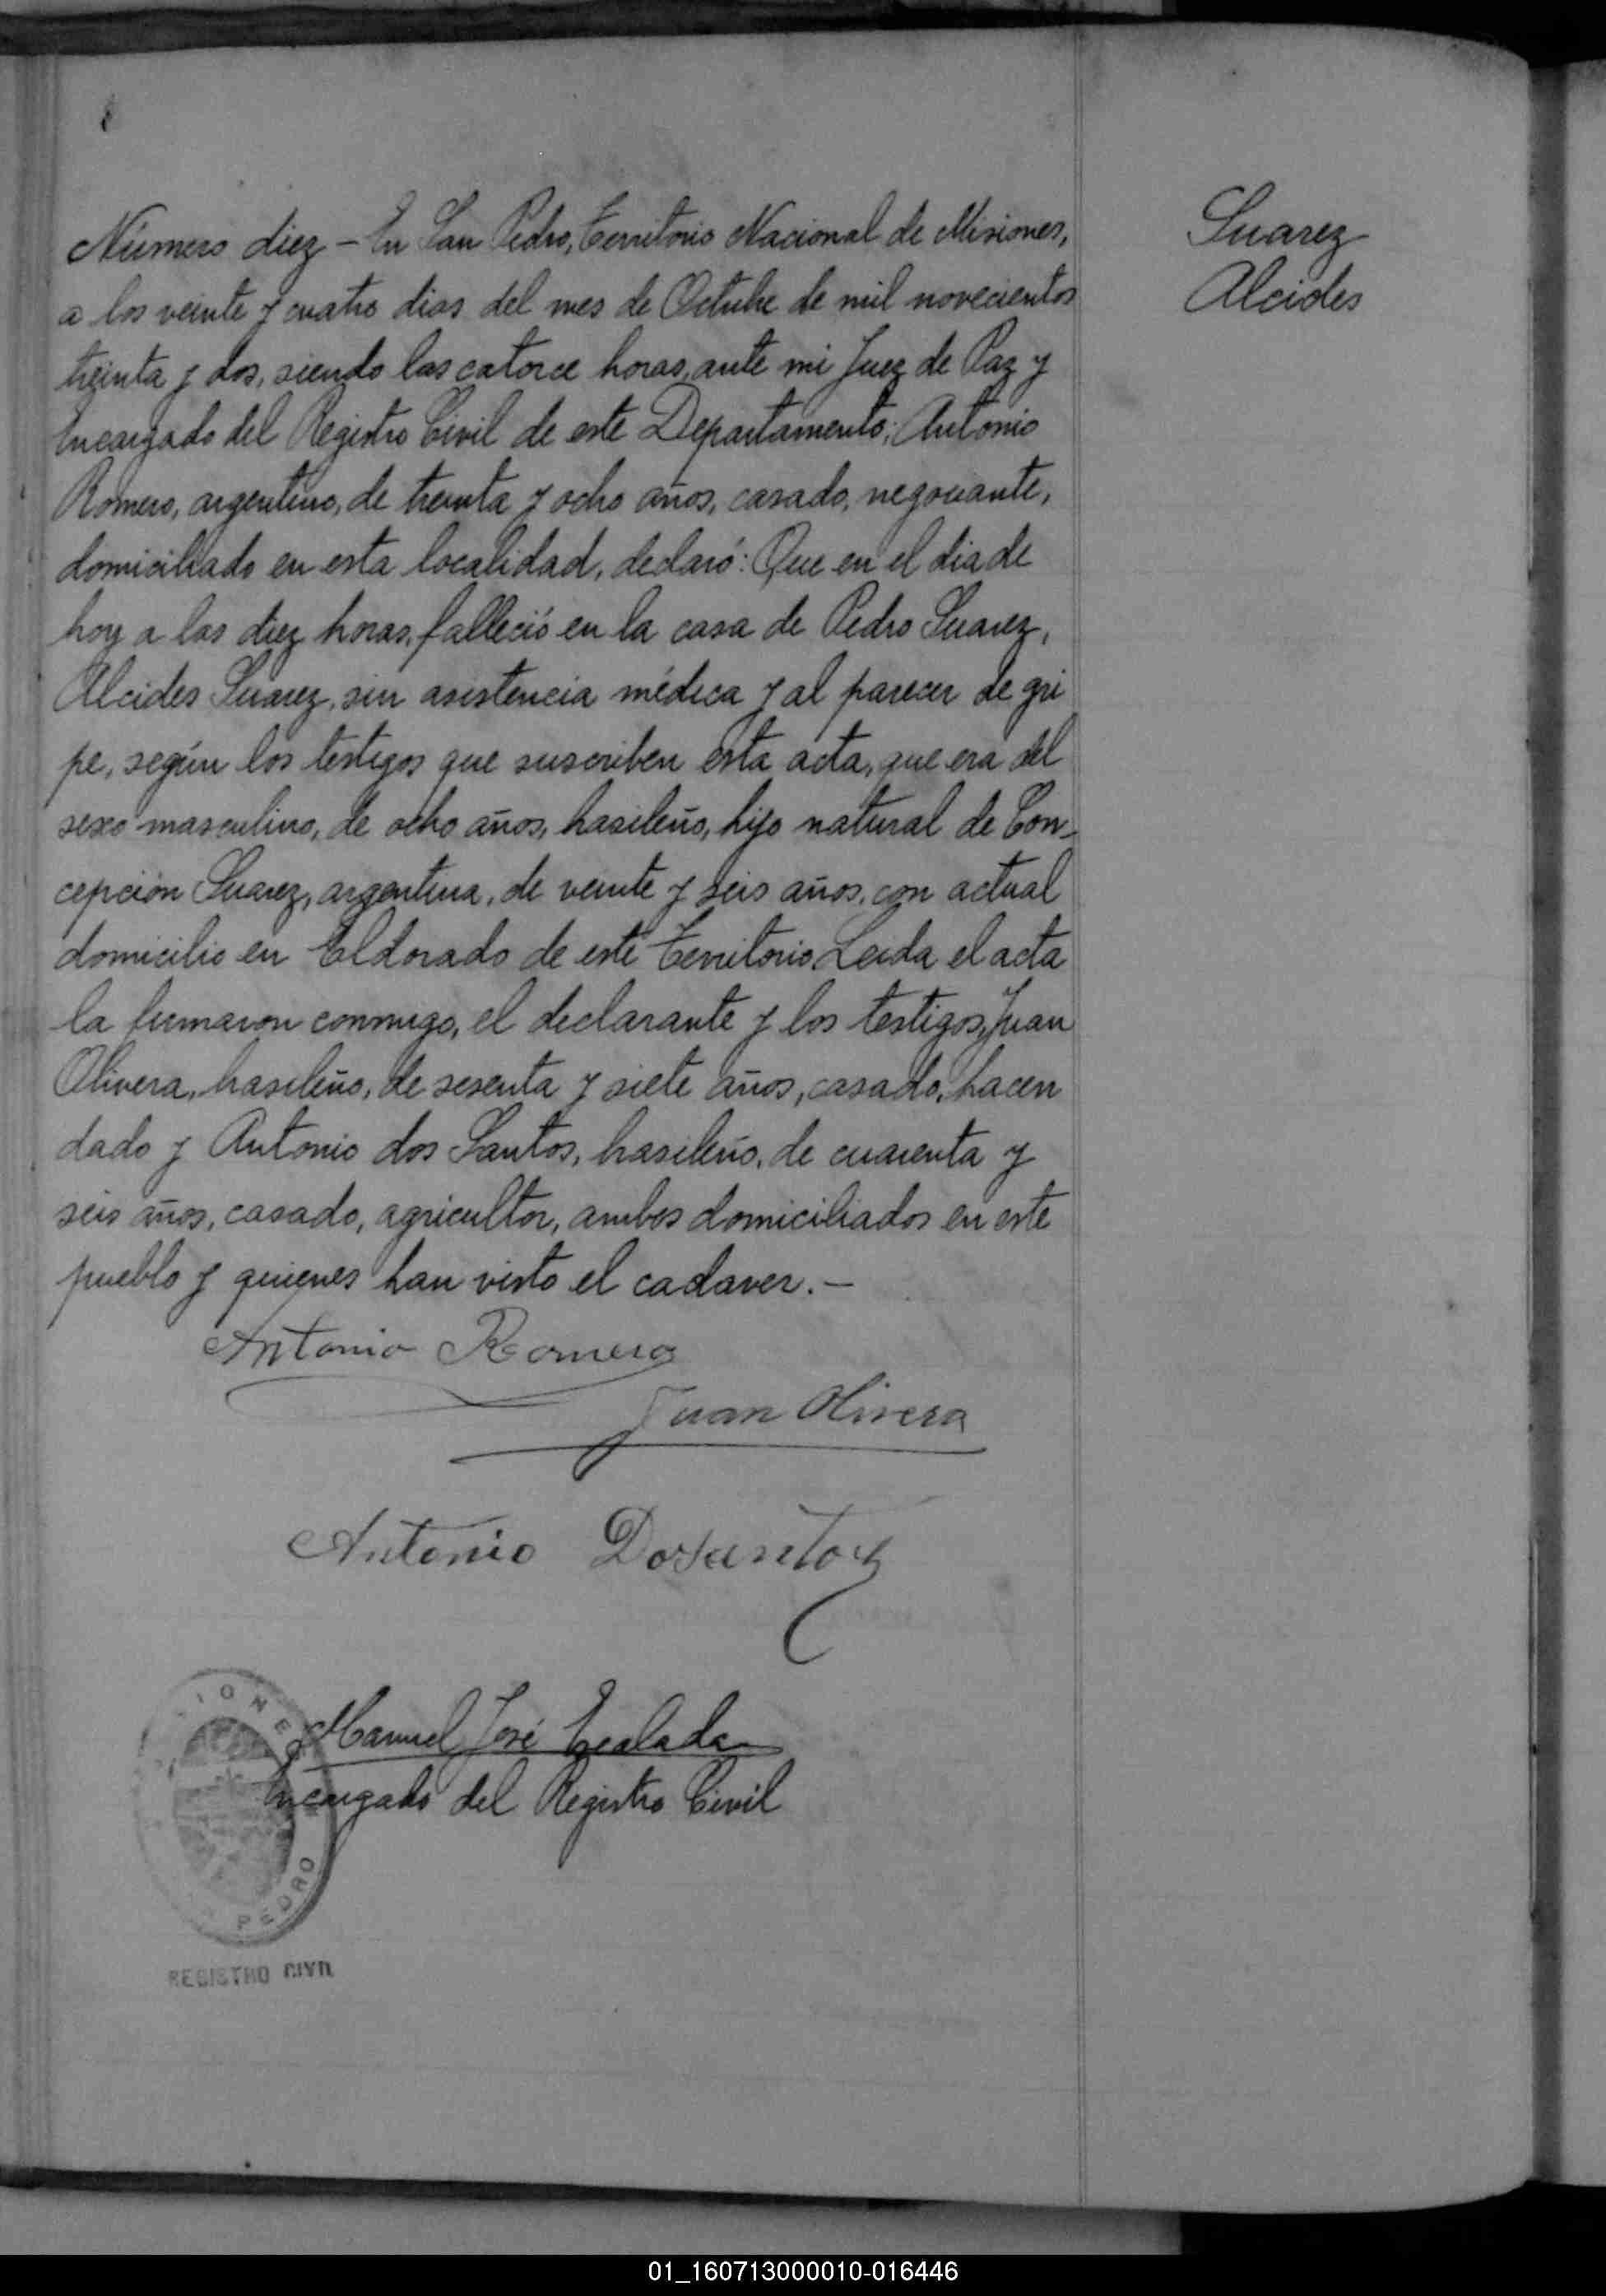 Número diez - En San Pedro, Territorio Nacional de Misiones,
a los veinte y cuatro dias del mes de Octubre de mil novecientos
treinta y dos, siendo las catorce horas, ante mi Juez de Paz y
Encargado del Registro Civil de este Departamento; Antonio
Romero, argentino, de treinta y ocho años, casado, negociante,
domiciliado en esta localidad, declaró: Que en el dia de
hoy a las diez horas, falleció en la casa de Pedro Suarez,
Alcides Suarez, sin asistencia médica y al parecer de gri
pe, según los testigos que suscriben esta acta, que era del
sexo masculino, de ocho años, brasileño, hijo natural de Con-
cepción Suarez, argentina, de veinte y seis años, con actual
domicilio en Eldorado de este Territorio. Leida el acta
la firmaron conmigo, el declarante y los testigos, Juan
Olivera, brasileño, de sesenta y siete años, casado, hacen
dado y Antonio dos Santos, brasileño, de cuarenta y
seis años, casado, agricultor, ambos domiciliados en este
pueblo y quienes han visto el cadaver. -
Suarez
Alcides
Antonio Romero
Juan Olivera
Antonio Dosantos
Manuel José
Encargado del Registro Civil
IONES
PEDRO
REGISTRO CIVIL
01_160713000010-016446